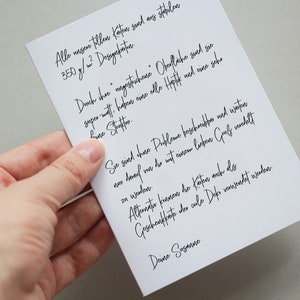 Alle unsere tollen Karten sind aus stabilen
350 g/m² Designkarton.
Durch ihre "ungestrichene" Oberfläche sind sie
super matt, haben eine tolle Haptik und eine sehr
feine Struktur.
Sie sind ohne Probleme beschreibbar und warten
nur darauf von dir mit einem lieben Gruß veredelt
zu werden.
Alternativ können die Karten auch als
Geschenkkarte oder coole Deko verwendet werden.
Deine Susanne